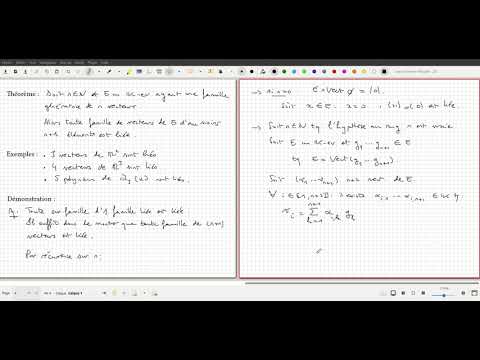 Théorème : Soit n ∈ N et E un K-ev ayant une famille
génératrice de n vecteurs.
Alors toute famille de vecteurs de E d'au moins
n+1 éléments est liée.
Exemples : • 3 vecteurs de R² sont liés
• 4 vecteurs de R³ sont liés
• 5 de (K) sont liés.
Démonstration :
Toute sur famille d'1 famille liée est liée.
Il suffit donc de montrer que toute famille de (n+1)
vecteurs est liée.
Par récurrence sur n :
→ n=0 E = Vect ∅ = {0}.
Soit x ∈ E : x=0 , (x) = (0) est liée.
→ Soit n ∈ N tq l'hypothèse au rang n est vraie
Soit E un K-ev et g1 ... gn+1 ∈ E
tq E = Vect(g1 ... gn+1)
Soit (v1 ... vn+2) n+2 vect de E.
∀ i ∈ [[1, n+2]] : ∃ αi,1 ... αi,n+1 ∈ K tq
vi = Σ αi,k gk
k=1
n+1